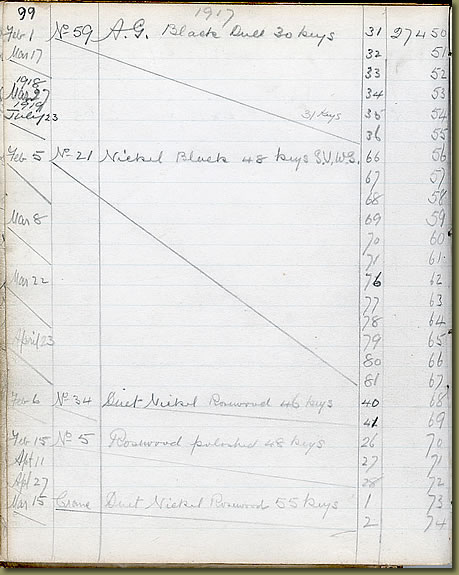 99
1917
Feb 1 No 59 A.G. Black Dull 30 keys 31 27450
Mar 17 32 51
33 52
1918
Mar 27 34 53
1919
July 23 31 keys 35 54
36 55
Feb 5 No 21 Nickel Black 48 keys S.V.W.S. 66 56
67 57
68 58
Mar 8 69 59
70 60
71 61
Mar 22 76 62
77 63
78 64
April 23 79 65
80 66
81 67
Feb 6 No 34 Duet Nickel Rosewood 46 keys 40 68
41 69
Feb 15 No 5 Rosewood polished 48 keys 26 70
Apl 11 27 71
Apl 27 28 72
Mar 15 Crane Duet Nickel Rosewood 55 keys 1 73
2 74